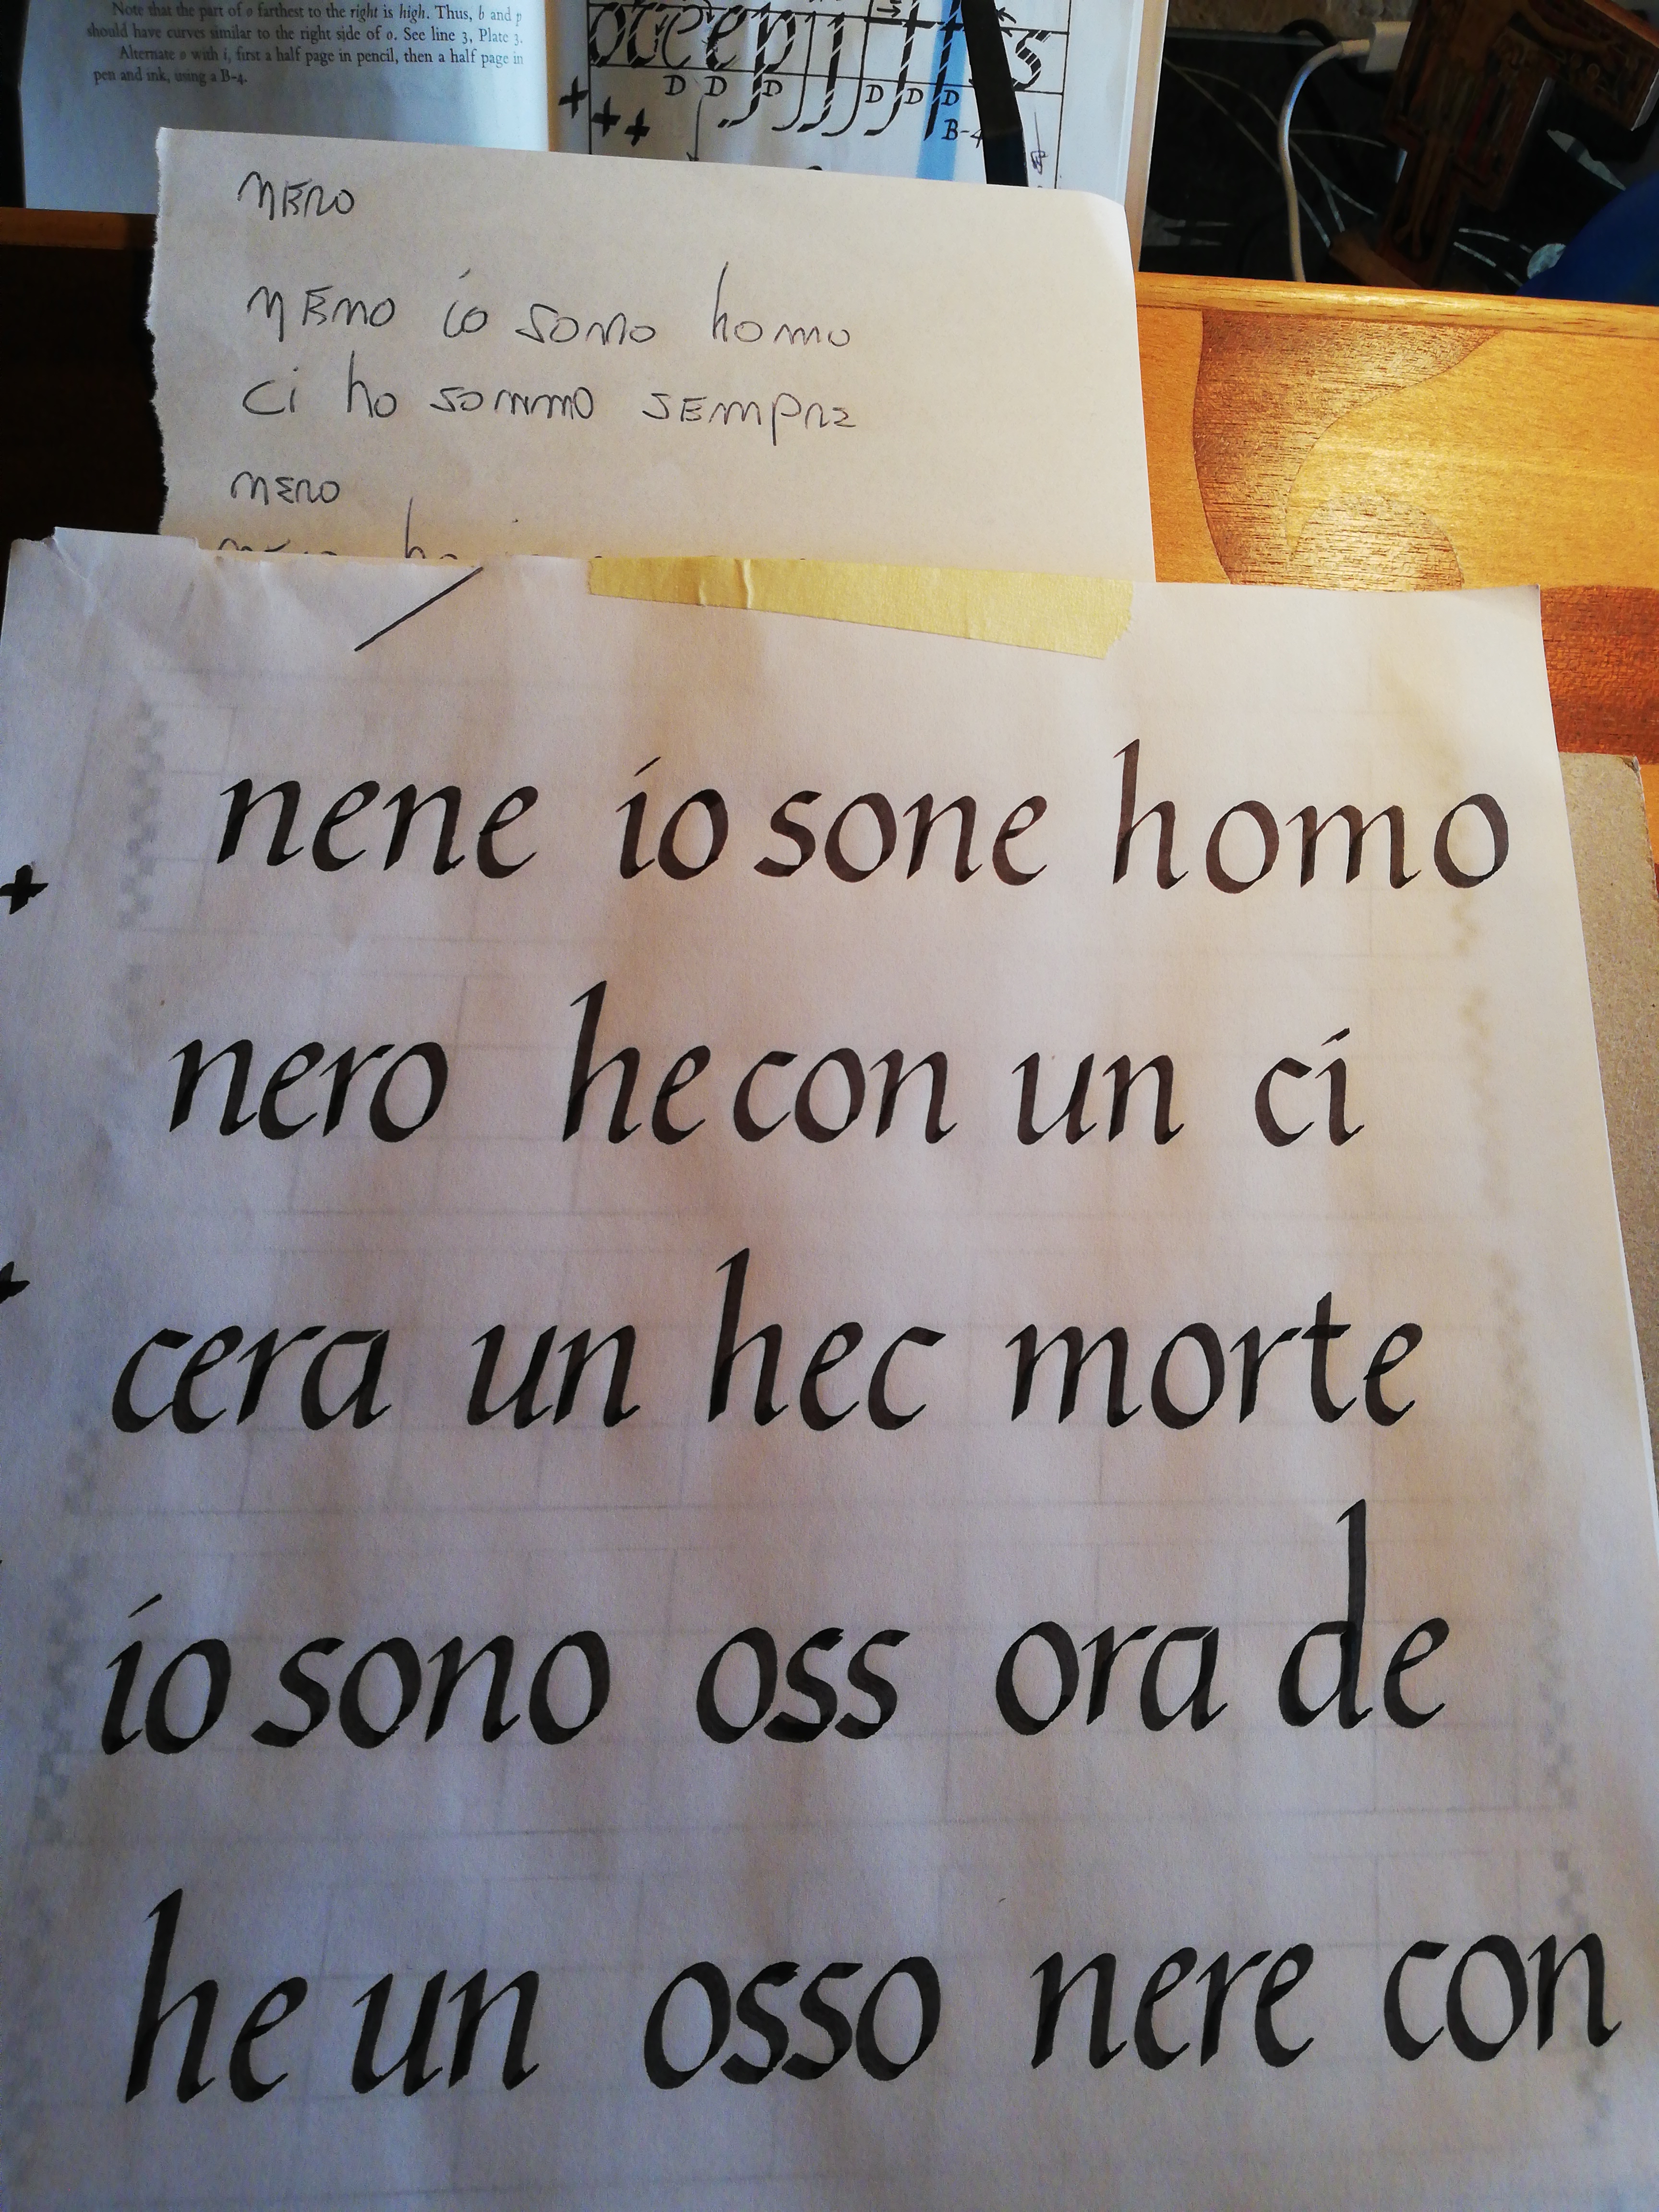 Note that the part of o farthest to the right is high. Thus, b and p
should have curves similar to the right side of o. See line 3, Plate 3.
Alternate o with i, first a half page in pencil, then a half page in
pen and ink, using a B-4.
D D D D D D
B-4
NERO
NEMO io sono homo
ci ho sommo SEMPRE
NERO
nene io sone homo
nero he con un ci
cera un hec morte
io sono oss ora de
he un osso nere con